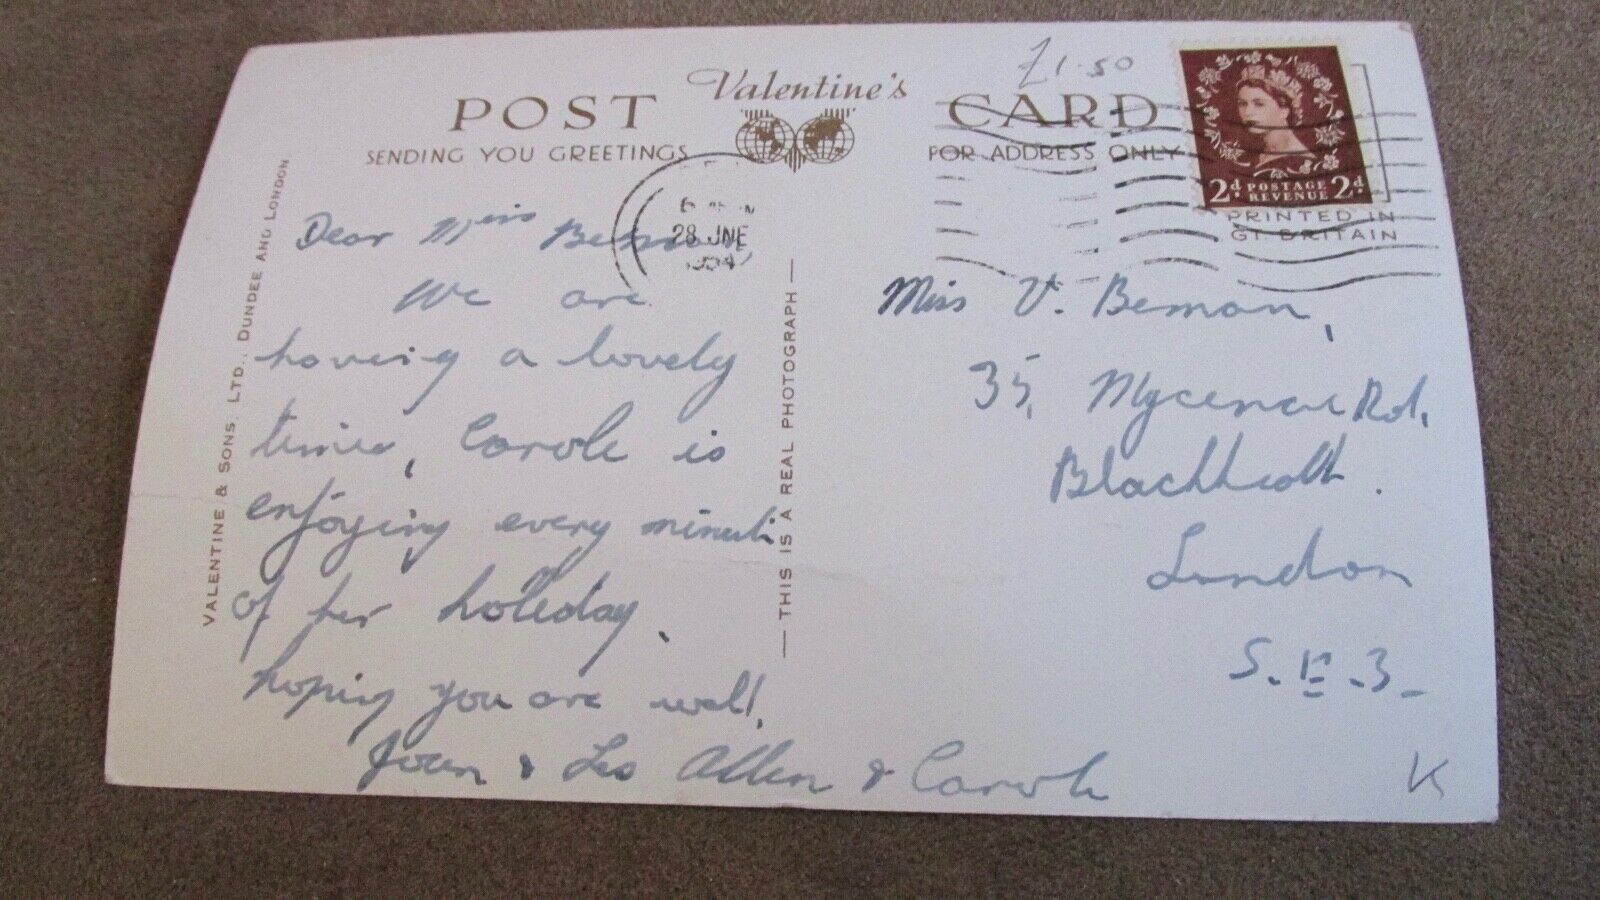 Valentine's
POST CARD
SENDING YOU GREETINGS
FOR ADDRESS ONLY
£1.50
2d POSTAGE REVENUE 2d
PRINTED IN
GT. BRITAIN
28 JNE
VALENTINE & SONS, LTD., DUNDEE AND LONDON
Dear Miss Beman
We are
having a lovely
time, Carole is
enjoying every minute
of her holleday.
hoping you are well,
Joan & Les Allen & Carole
— THIS IS A REAL PHOTOGRAPH —
Miss V. Beman,
35, Mycenae Rd,
Blackheath.
London
S.E.3.
K